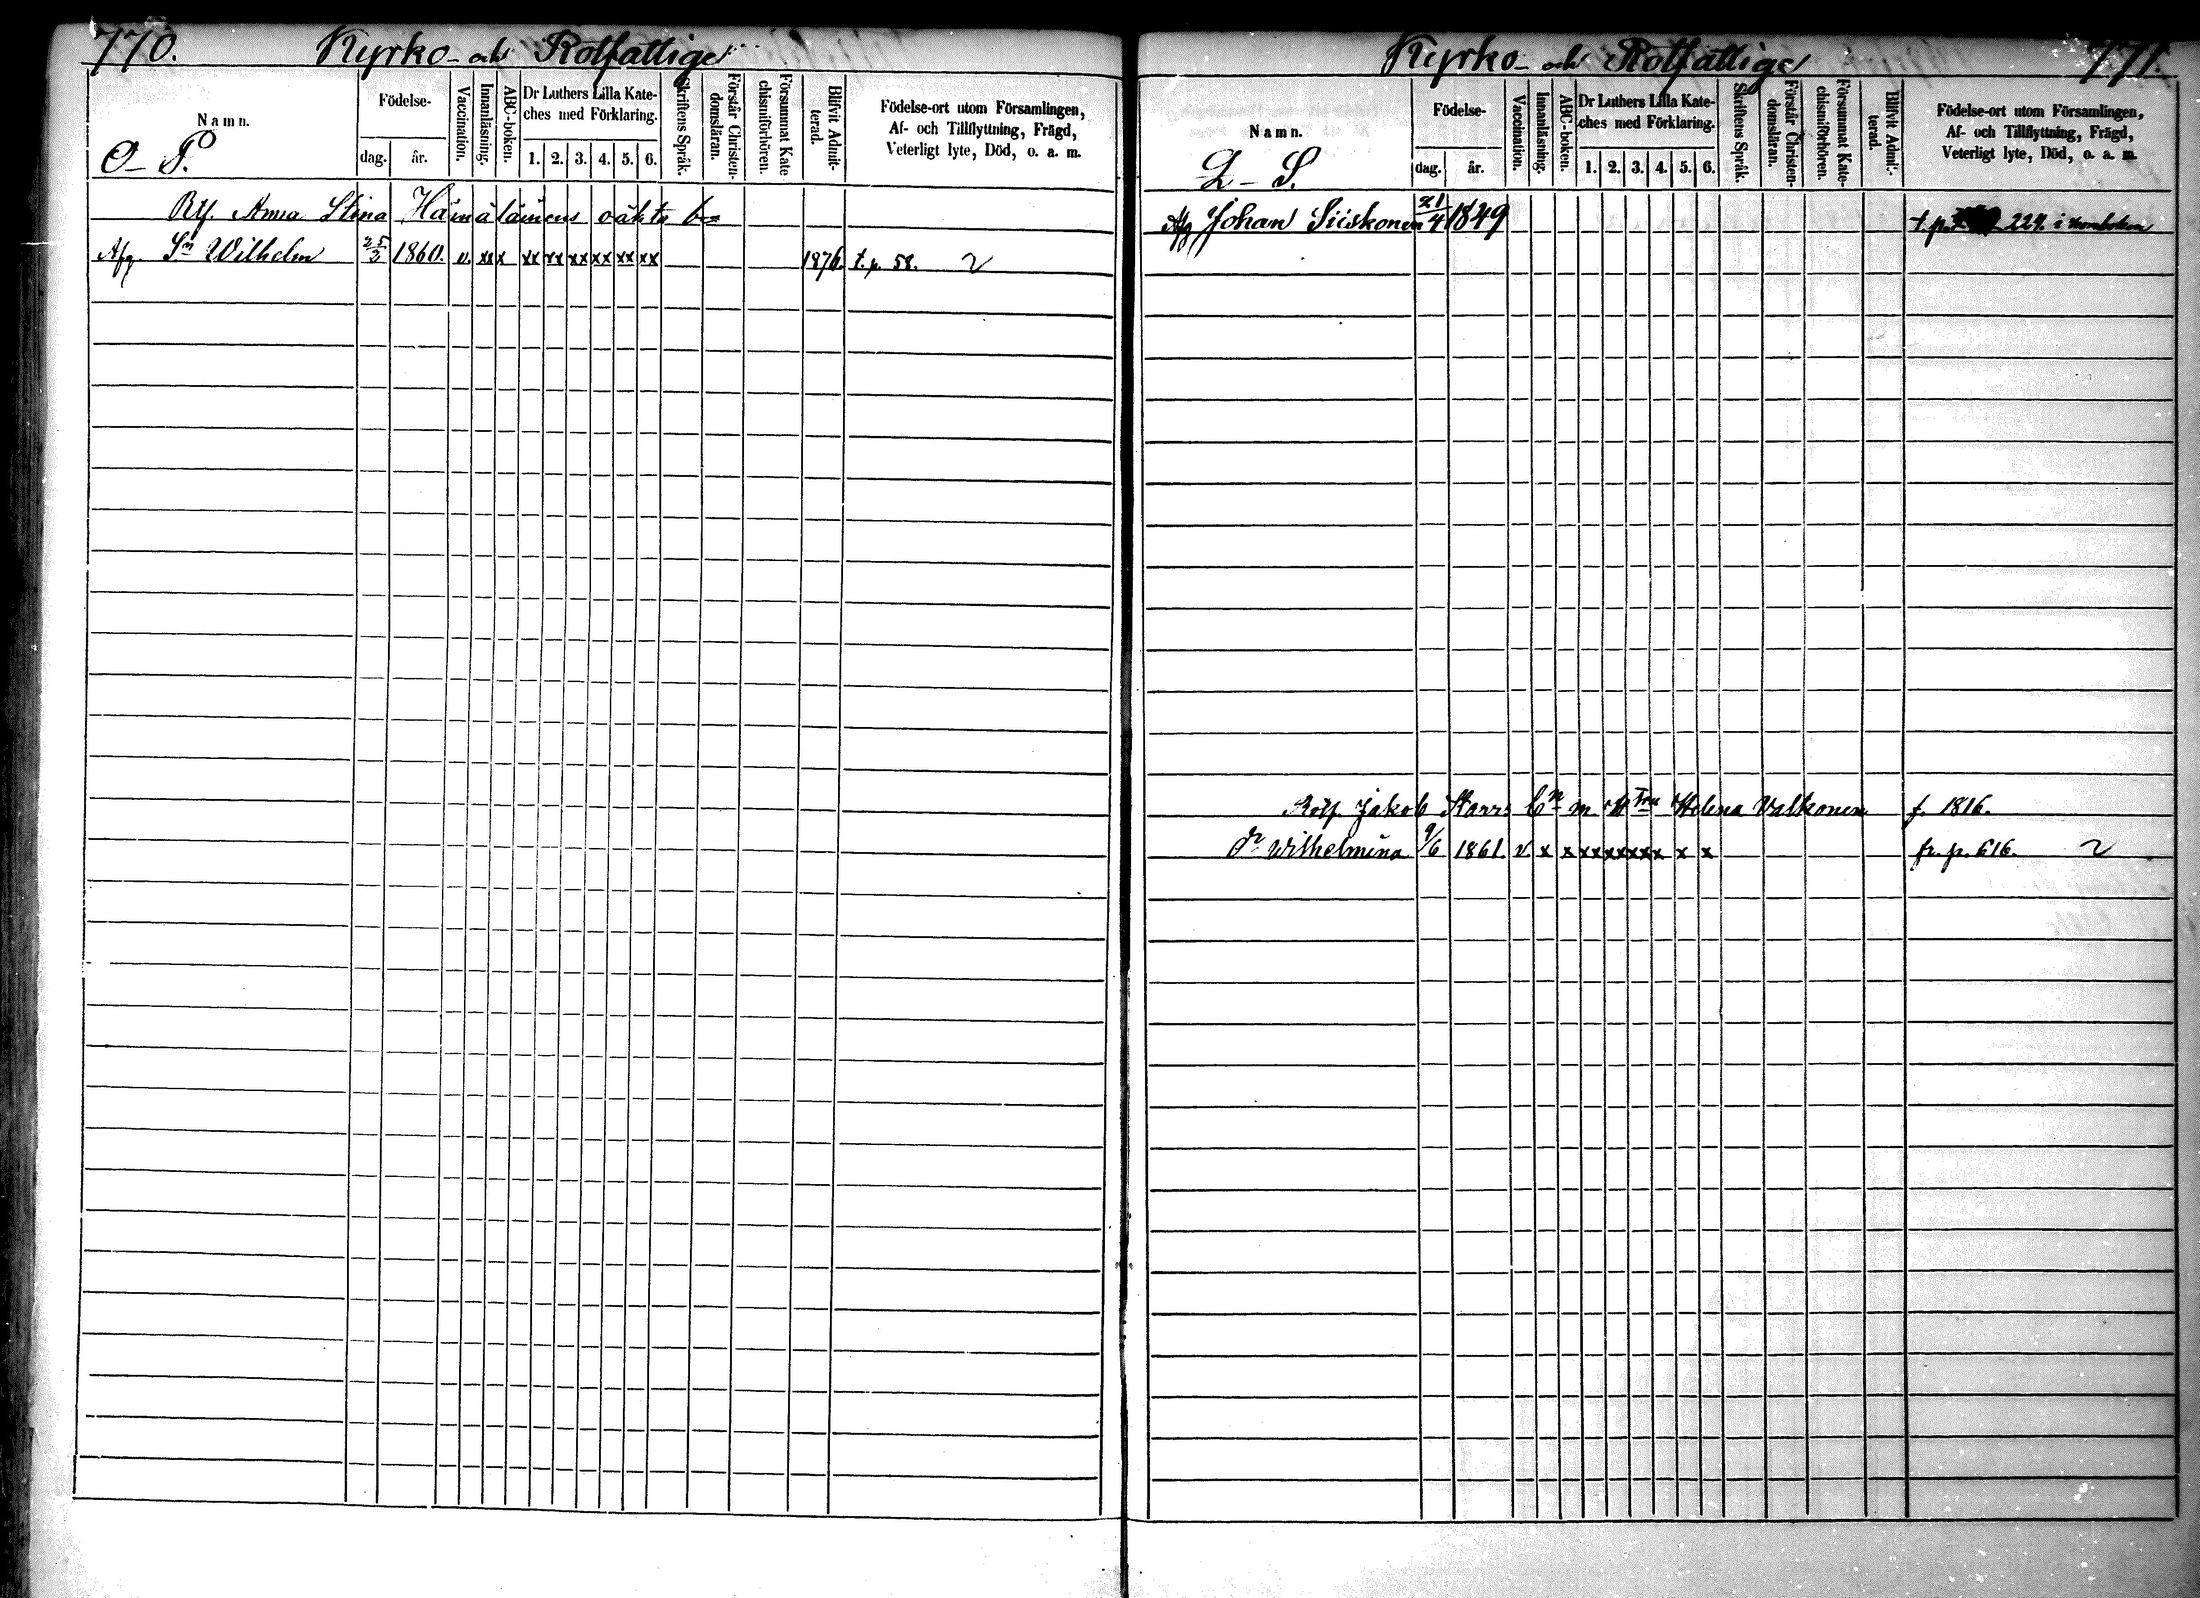 770. Kyrko- och Rotfattige
Namn.
O- P.
Födelse-
dag. år.
Vaccination.
Innanläsning.
ABC-boken.
Dr Luthers Lilla Kate-
ches med Förklaring.
1. 2. 3. 4. 5. 6.
Skriftens Språk.
Förstår Christen-
domsläran.
Försummat Kate-
chismiförhören.
Blifvit Admit-
terad.
Födelse-ort utom Församlingen,
Af- och Tillflyttning, Frägd,
Veterligt lyte, Död, o. a. m.
Rtf. Anna Stina Hämäläinens oäkta b=
Afg. Sn Wilhelm 25/3 1860. v. xx x xx xx xx xx xx xx 1876. t. p. 58.
Kyrko- och Rotfattige 771.
Namn.
Q- S.
Födelse-
dag. år.
Vaccination.
Innanläsning.
ABC-boken.
Dr Luthers Lilla Kate-
ches med Förklaring.
1. 2. 3. 4. 5. 6.
Skriftens Språk.
Förstår Christen-
domsläran.
Försummat Kate-
chismiförhören.
Blifvit Admit-
terad.
Födelse-ort utom Församlingen,
Af- och Tillflyttning, Frägd,
Veterligt lyte, Död, o. a. m.
Afg Johan Siiskonen 21/4 1849 t. p. 224. i
Rotf. Jakob Starrs bn m. Helena Valkonen f. 1816.
dr Wilhelmina 9/6 1861. v. x x xx xx xx x x x fr. p. 616.